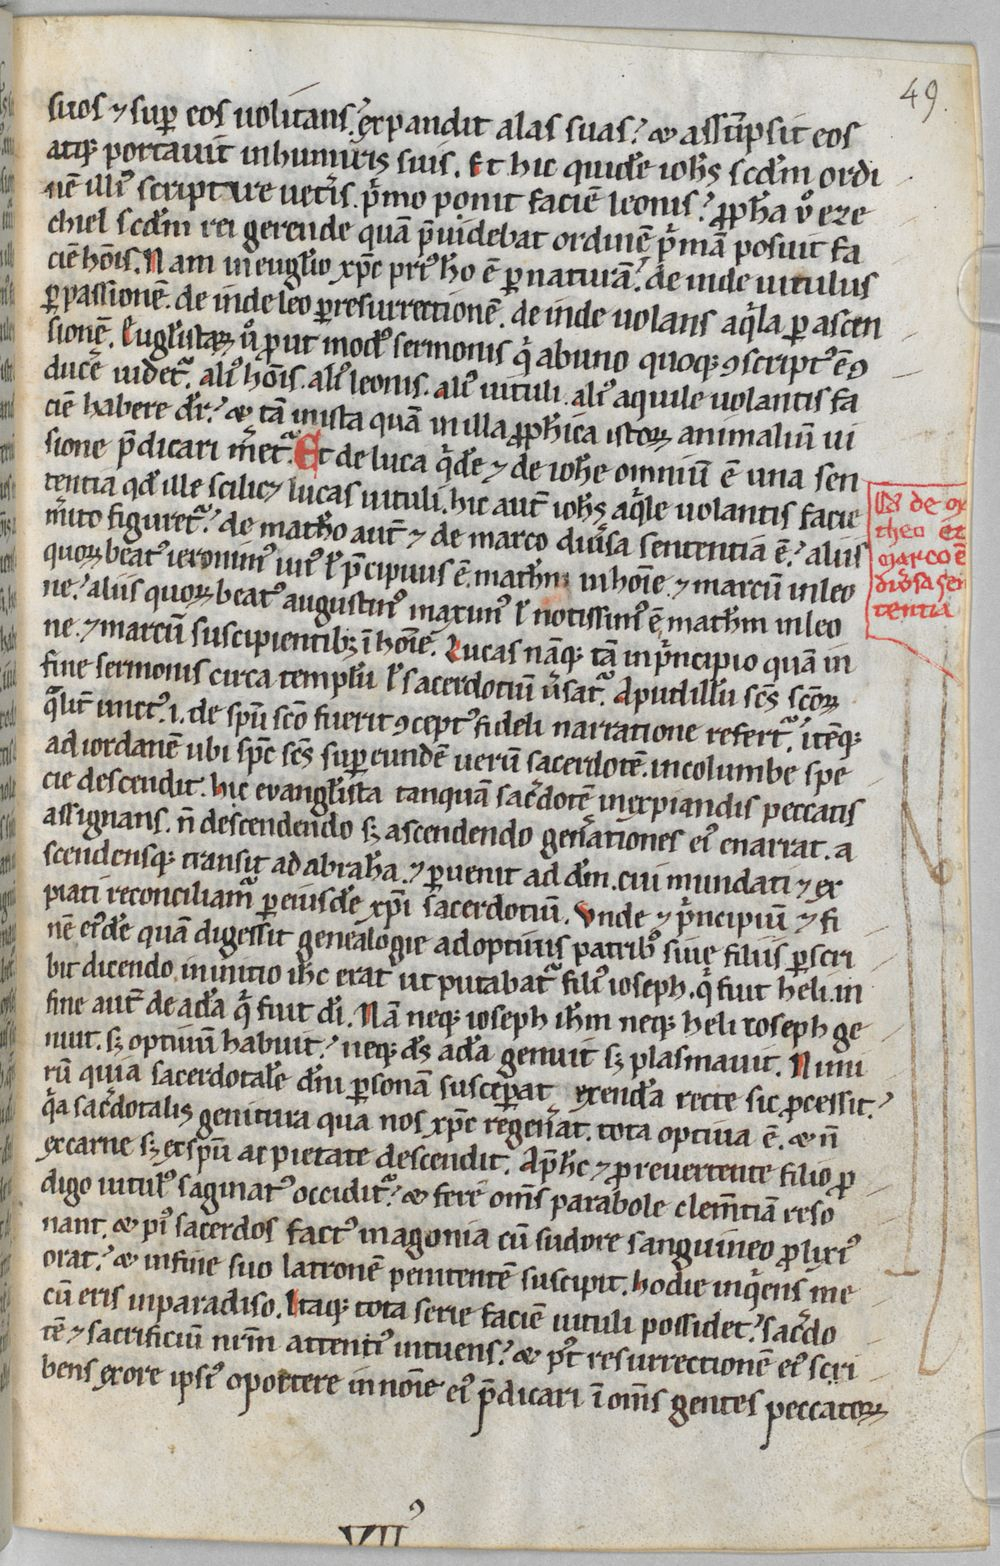 49.
suos ⁊ suꝑ eos uolitans. exꝑandit alas suas. & assūpsit eos
atq; portauit in humeris suis. Et hic quidē ioħs scd̄m ordi
nē illiꝰ scripture ueteris. p̄mo ponit faciē leonis. ꝓpħa ů eze
chiel scd̄m rei gerende quā p̄uidebat ordinē p̄mā posuit fa
ciē hōis. Nam in euuglio xp̄c pri.ho ē ꝑ naturā. de inde uitulus
ꝑ passionē. de inde leo ꝑ resurrectionē. de inde uolans aq̄la ꝑ ascen
sionē. Euuglistaꝝ ů ꝓut modꝰ sermonis q̄ ab uno quoq; ꝯscriptꝰ ē ꝯ
ducē uidet̄. aliꝰ hōis. aliꝰ leonis. aliꝰ uituli. aliꝰ aquile uolantis fa
ciē habere dr̄. & tā in ista quā in illa ꝓpħica istoꝝ animaliū ui
sione p̄dicari m̄et̄. Et de luca q̄dē ⁊ de ioħe omniū ē una sen
tentia qd̄ ille scilic⁊ lucas uituli. hic aut̄ ioħs aq̄le uolantis faciē
m̄ito figuret̄. de matħo aut̄ ⁊ de marco diūsa sententia ē. aliis
quoꝝ beatꝰ ieronimꝰ ł p̄cipuus ē. matħm in hoīe ⁊ marcū in leo
ne. aliis quoꝝ beatꝰ augustinꝰ maximꝰ ł notissimꝰ ē. matħm in leo
ne. ⁊ marcū suscipientib; ī hoīe. Lucas nāq; tā in p̄ncipio quā in
fine sermonis circa templū ł sacerdotiū ůsat̄. Apud illū sc̄s sc̄oꝝ
q̄lit̄ unctꝰ .i. de sp̄u sc̄o fuerit ꝯceptꝰ fideli narratione refert̄. itēq;
ad iordanē ubi sp̄c sc̄s suꝑ eundē uerū sacerdotē. in columbe spe
cie descendit. hic evanglista tanquā sac̄dotē in expiandis peccatis
assignans. n̄ descendendo s; ascendendo gen̄ationes eiꝰ enarrat. a
scendensq; transit ad abrahā. ⁊ ꝑuenit ad dm̄. cui mundati ⁊ ex
piati reconciliam̄ ꝑ eiusdē xp̄i sacerdotiū. Vnde ⁊ p̄ncipiū ⁊ fi
nē eiꝰdē quā digessit genealogie adoptiuis patribꝰ siue filiis ꝑscri
bit dicendo. in initio iħc erat ut putabat̄ filiꝰ ioseph. q̄ fuit heli. in
fine aut̄ de adā q̄ fuit dī. Nā neq; ioseph iħm neq; heli ioseph ge
nuit. s; optiuū habuit. neq; ds̄ adā genuit s; plasmauit. Nimi
rū quia sacerdotalē dn̄i ꝑsonā suscēꝑat exendā recte sic ꝓcessit.
q̄a sac̄dotalis genitura qua nos xp̄c regen̄at. tota optiua ē. & n̄
ex carne s; ex sp̄u ac pietate descendit. Ap̄ hc ⁊ ꝓ reuertente filio ꝓ
digo uitulꝰ saginatꝰ occidit̄. & fere om̄s parabole clem̄tiā reso
nant. & piꝰ sacerdos factꝰ in agonia cū sudore sanguineo ꝓlixiꝰ
orat. & in fine suo latronē penitentē suscipit. hodie inq̄ens me
cū eris in paradiso. Itaq; tota serie faciē uituli possidet. sac̄do
tē ⁊ sacrificiū nr̄m attentiꝰ intuens. & p̄t resurrectionē eiꝰ scri
bens ex ore ipsiꝰ oportere in noīe eiꝰ p̄dicari ī om̄s gentes peccatoꝝ
Qd de ma
theo et
marco ē
diůsa sen
tentia
VIIꝰ